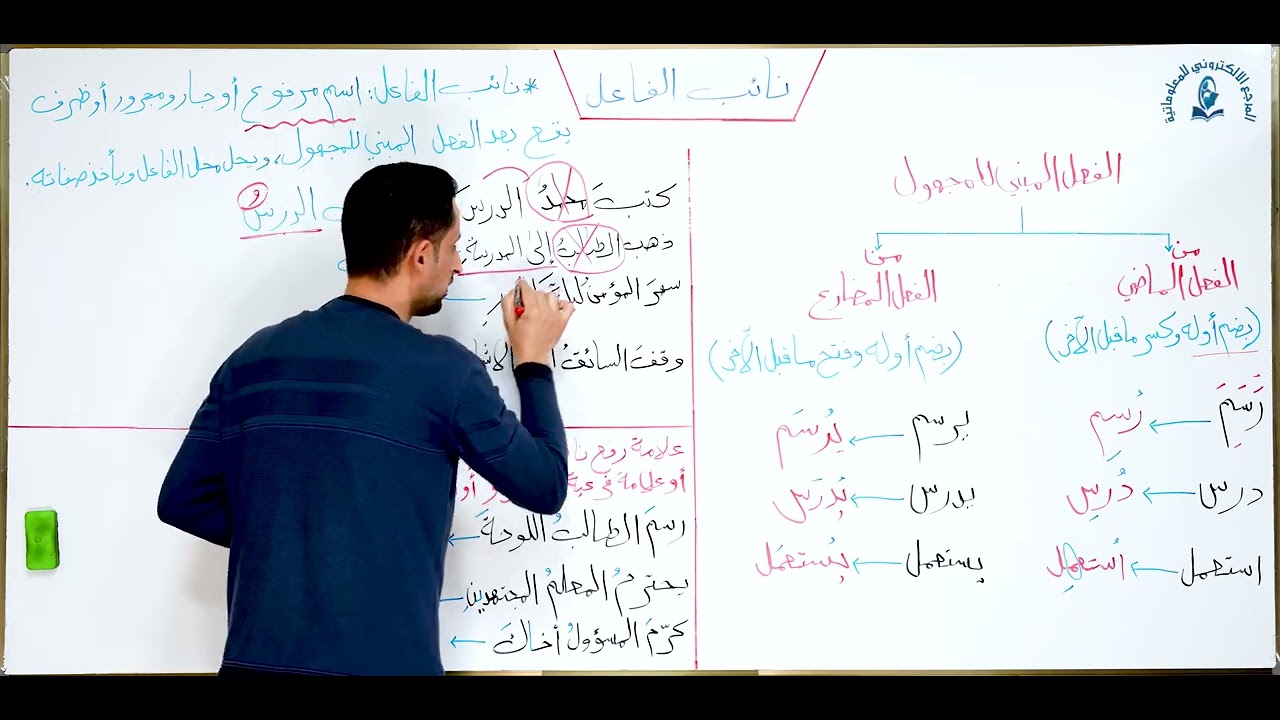 نائب الفاعل
المرجع الالكتروني للمعلوماتية
* نائب الفاعل: اسم مرفوع أو جار ومجرور أو ظرف
يقع بعد الفعل المبني للمجهول، ويحل محل الفاعل ويأخذ صفاته.
كتبَ محمدُ الدرسَ
الدرسُ
ذهب الطالبُ إلى المدرسة
سهرَ المؤمنُ ليلةَ
وقفَ السائقُ
الفعل المبني للمجهول
من الفعل الماضي
من الفعل المضارع
(يضم أوله وكسر ما قبل الآخر)
(يضم أوله وفتح ما قبل الآخر)
رَسَمَ ← رُسِمِ
يرسم ← يُرسَم
درس ← دُرِس
يدرس ← يُدرَس
استعمل ← اُستعمِل
يستعمل ← يُستعمَل
علامة رفع
أو علامة فرعية
رسمَ الطالبُ اللوحةَ ←
يحترمُ المعلمُ المجتهدينِ
كرّمَ المسؤولُ أخاكَ ←